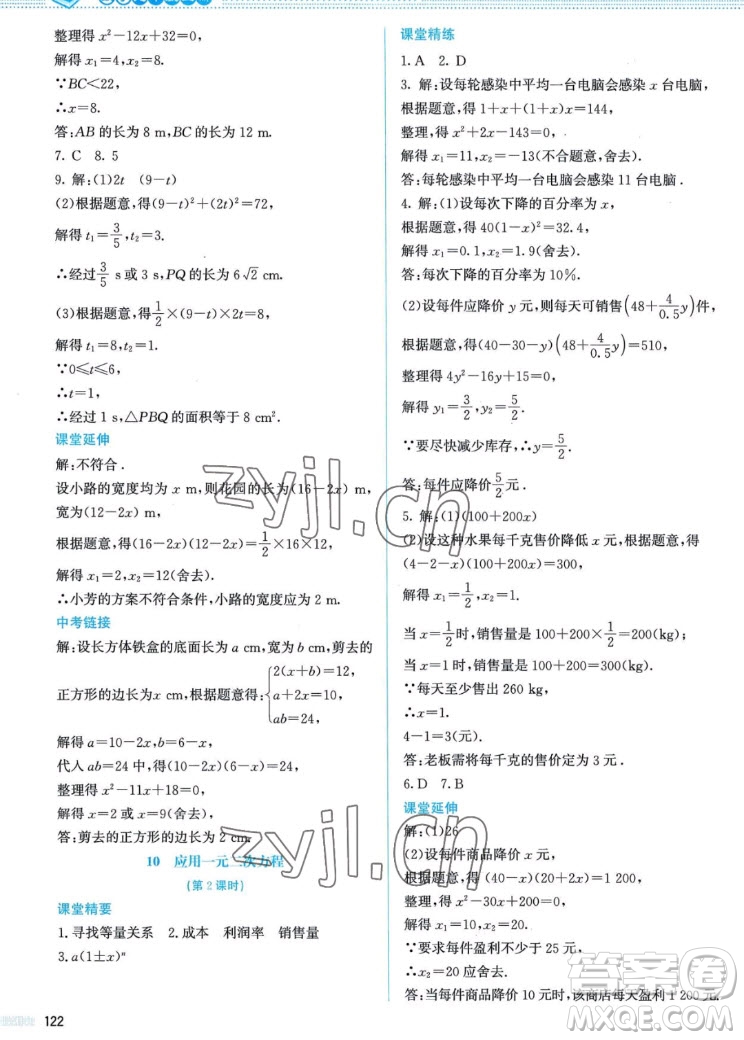 整理得 x²－12x＋32＝0，
解得 x₁＝4，x₂＝8.
∵BC＜22，
∴x＝8.
答：AB 的长为 8 m，BC 的长为 12 m.
7. C　8. 5
9. 解：(1)2t　(9－t)
(2)根据题意，得(9－t)²＋(2t)²＝72，
解得 t₁＝3/5，t₂＝3.
∴经过 3/5 s 或 3 s，PQ 的长为 6√2 cm.
(3)根据题意，得 1/2×(9－t)×2t＝8，
解得 t₁＝8，t₂＝1.
∵0≤t≤6，
∴t＝1，
∴经过 1 s，△PBQ 的面积等于 8 cm².
课堂延伸
解：不符合.
设小路的宽度均为 x m，则花园的长为(16－2x) m，
宽为(12－2x) m，
根据题意，得(16－2x)(12－2x)＝1/2×16×12，
解得 x₁＝2，x₂＝12(舍去).
∴小芳的方案不符合条件，小路的宽度应为 2 m.
中考链接
解：设长方体铁盒的底面长为 a cm，宽为 b cm，剪去的
正方形的边长为 x cm，根据题意得：{2(x＋b)＝12，
a＋2x＝10，
ab＝24，
解得 a＝10－2x，b＝6－x，
代入 ab＝24 中，
整理得 x²－11x＋18＝0，
解得 x＝2 或 x＝9(舍去)，
答：剪去的正方形的边长为 2 cm.
10　应用一元二次方程
(第 2 课时)
课堂精要
1. 寻找等量关系　2. 成本　利润率　销售量
3. a(1±x)ⁿ
122
课堂精练
1. A　2. D
3. 解：设每轮感染中平均一台电脑会感染 x 台电脑，
根据题意，得 1＋x＋(1＋x)x＝144，
整理，得 x²＋2x－143＝0，
解得 x₁＝11，x₂＝－13(不合题意，舍去).
答：每轮感染中平均一台电脑会感染 11 台电脑.
4. 解：(1)设每次下降的百分率为 x，
根据题意，得 40(1－x)²＝32.4，
解得 x₁＝0.1，x₂＝1.9(舍去).
答：每次下降的百分率为 10%.
(2)设每件应降价 y 元，则每天可销售(48＋4/0.5 y)件，
根据题意，得(40－30－y)(48＋4/0.5 y)＝510，
整理得 4y²－16y＋15＝0，
解得 y₁＝3/2，y₂＝5/2.
∵要尽快减少库存，∴y＝5/2.
答：每件应降价 5/2 元.
5. 解：(1)(100＋200x)
(2)设这种水果每千克售价降低 x 元，根据题意，得
(4－2－x)(100＋200x)＝300，
解得 x₁＝1/2，x₂＝1.
当 x＝1/2 时，销售量是 100＋200×1/2＝200(kg)；
当 x＝1 时，销售量是 100＋200＝300(kg).
∵每天至少售出 260 kg，
∴x＝1.
4－1＝3(元).
答：老板需将每千克的售价定为 3 元.
6. D　7. B
课堂延伸
解：(1)26
(2)设每件商品降价 x 元，
根据题意，得(40－x)(20＋2x)＝1 200，
整理，得 x²－30x＋200＝0，
解得 x₁＝10，x₂＝20.
∵要求每件盈利不少于 25 元，
∴x₂＝20 应舍去.
答：当每件商品降价 10 元时，该商店每天盈利 1 200 元.
zyjl.cn
zyjl.cn
答案圈
MXQE.COM